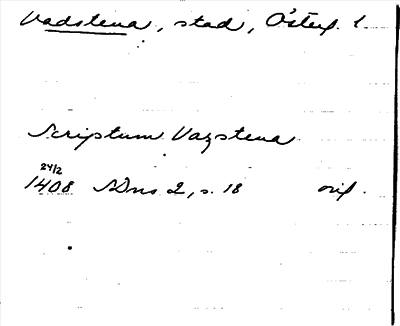 Vadstena, stad, Österg. l.
Scriptum Vazstena
24/2
1408 SDns 2, s. 18 orig.